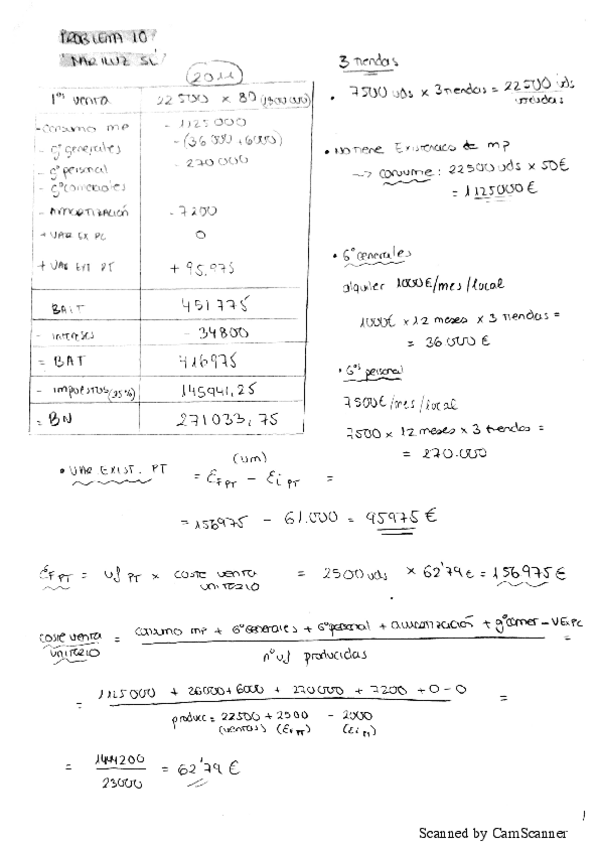 PROBLEMA 10
MARILUZ SL
2011
1ª venta 22500 × 80 (1800000)
- Consumo mp - 1125000
- Gº generales - (36000 + 6000)
- Gº personal - 270000
- Gº comerciales
- Amortización - 7200
+ VAR EX PC 0
+ VAR EXT PT + 95.975
BAIT 451775
- intereses - 34800
= BAT 416975
- impuestos (35%) 145941,25
= BN 271033,75
3 tiendas
• 7500 uds × 3 tiendas = 22500 uds
vendidas
• No tiene Existencias de mp
→ consume: 22500 uds × 50€
= 1125000 €
• Gº generales
alquiler 1000€/mes/local
1000€ × 12 meses × 3 tiendas =
= 36000 €
• Gº personal
7500€/mes/local
7500 × 12 meses × 3 tiendas =
= 270.000
• VAR EXIST. PT (um) = Ef PT - Ei PT =
= 156975 - 61.000 = 95975 €
Ef PT = uf PT × coste venta unitario = 2500 uds × 62'79 € = 156975 €
coste venta unitario = consumo mp + Gº generales + Gº personal + amortización + gº comer - VE.PC
nº uf producidas
= 1125000 + 26000 + 6000 + 270000 + 7200 + 0 - 0 =
produc = 22500 + 2500 - 2000
(ventas) (Ef PT) (Ei PT)
= 1444200 = 62'79 €
23000
1
Scanned by CamScanner